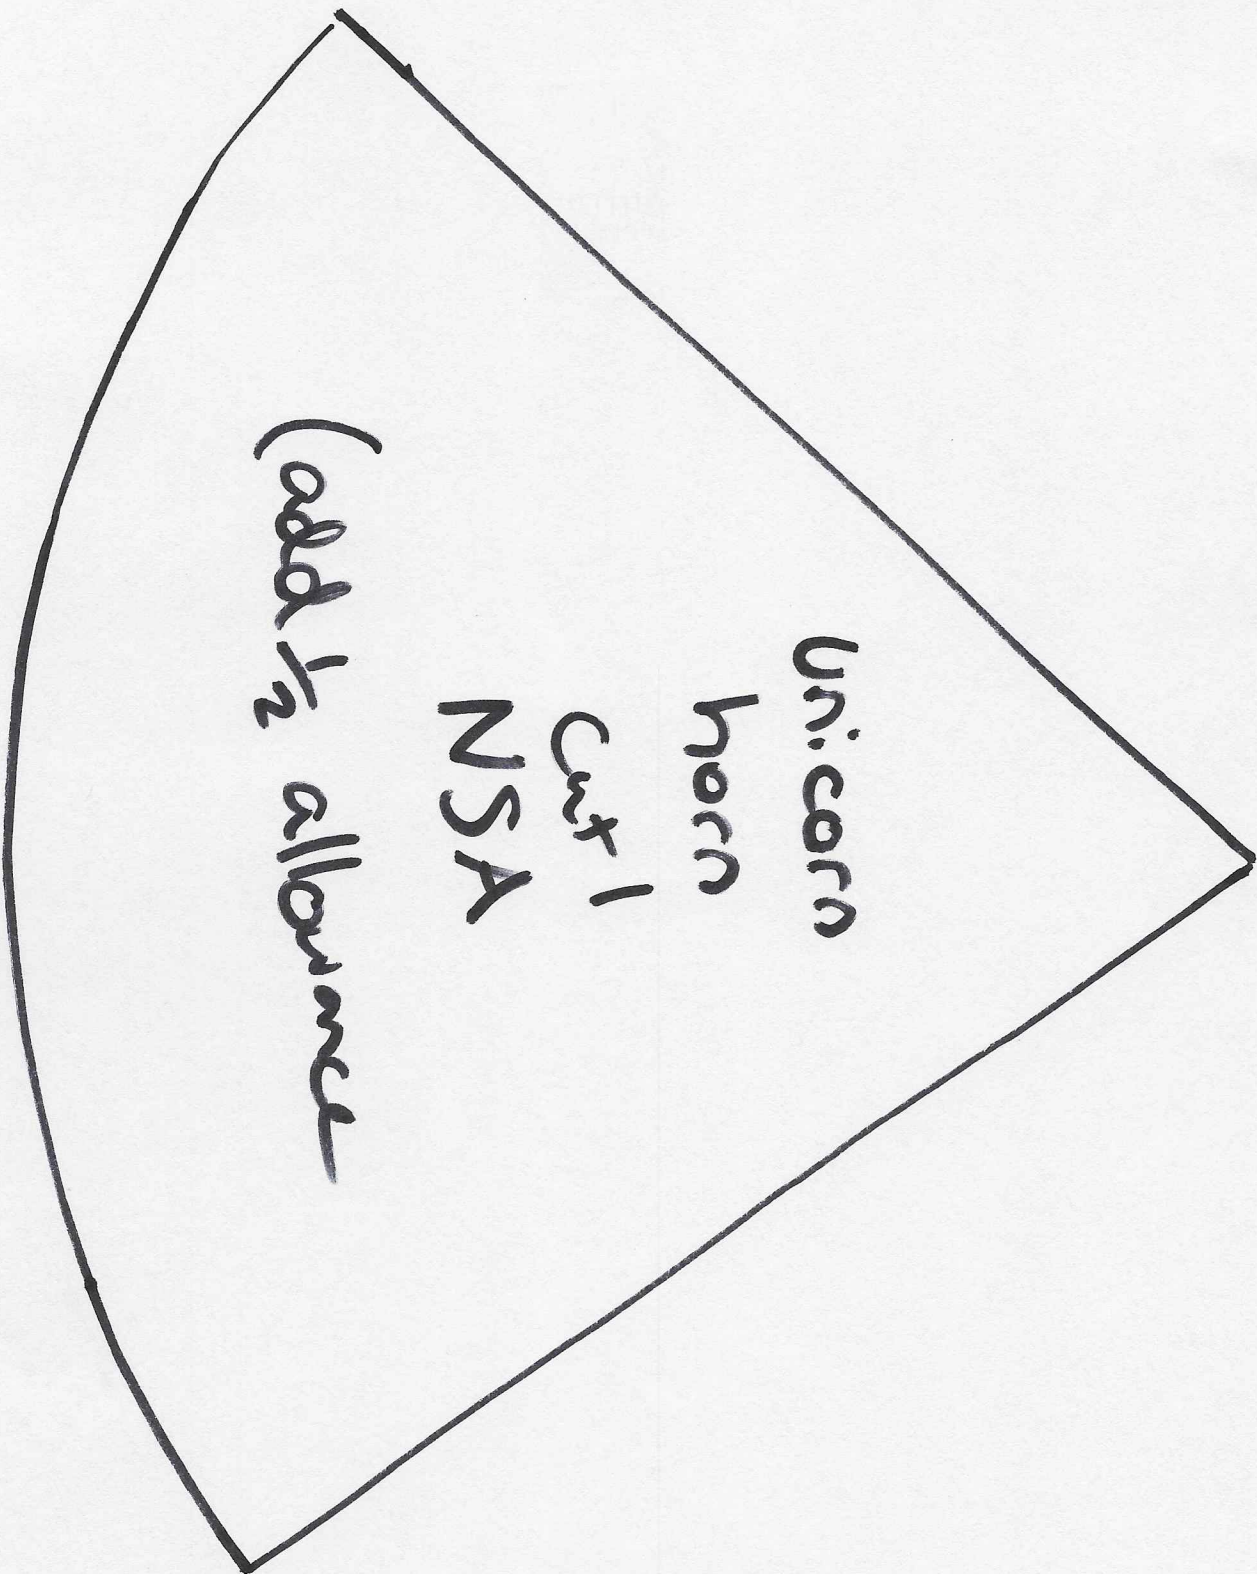 Unicorn
horn
Cut 1
NSA
(add 1/2 allowance